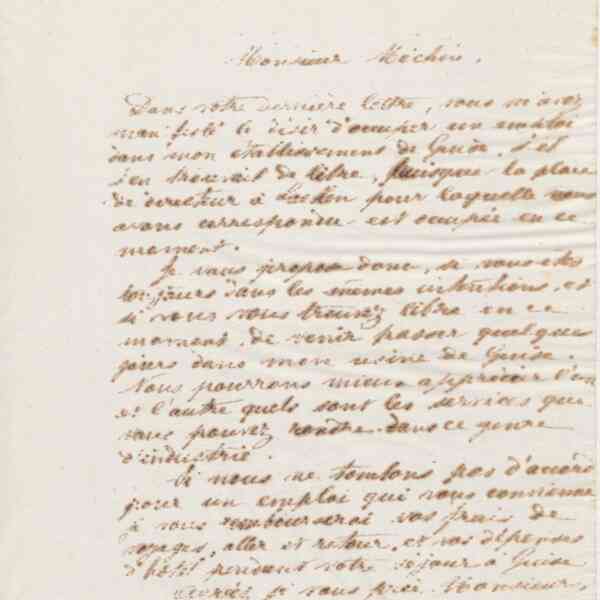 Monsieur Méchin,
Dans votre dernière lettre, vous m'avez
manifesté le désir d'occuper un emploi
dans mon établissement de Guise, s'il
s'en trouvait de libre, puisque la place
de directeur à Laeken pour laquelle nous
avons correspondu est occupée en ce
moment.
Je vous propose donc, si vous êtes
toujours dans les mêmes intentions, et
si vous vous trouvez libre en ce
moment, de venir passer quelques
jours dans mon usine de Guise.
Nous pourrons mieux apprécier l'un
et l'autre quels sont les services que
vous pouvez rendre dans ce genre
d'industrie.
Si nous ne tombons pas d'accord
pour un emploi qui vous convienne
je vous rembourserai vos frais de
voyages, aller et retour, et vos dépenses
d'hôtel pendant votre séjour à Guise
je vous prie, Monsieur,